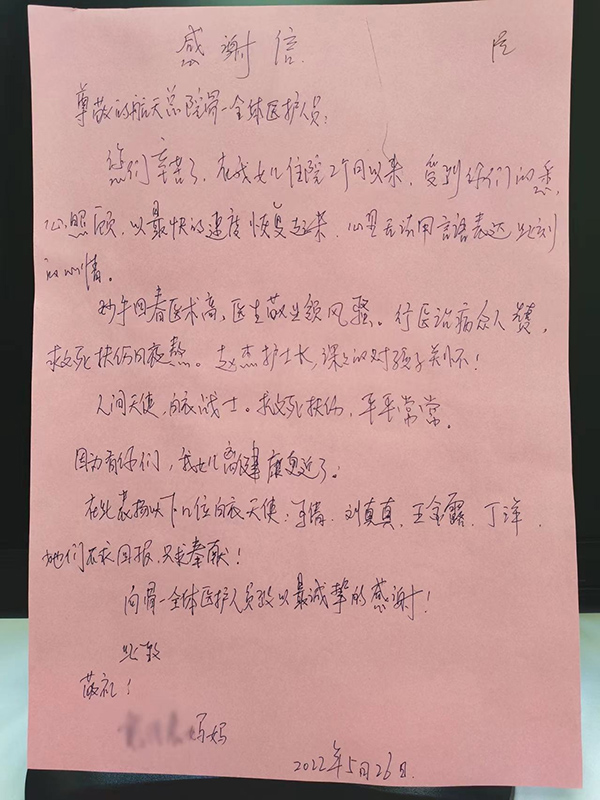 感谢信
尊敬的航天总院骨一全体医护人员:
您们辛苦了。在我女儿住院2个月以来,受到你们的悉
心照顾,以最快的速度恢复起来,心里无法用言语表达此刻
的心情。
妙手回春医术高,医生敬业领风骚。行医治病众人赞,
救死扶伤日夜熬。赵杰护士长,深深的对孩子关怀!
人间天使,白衣战士。救死扶伤,平平常常。
因为有你们,我女儿离健康更近了。
在此表扬以下几位白衣天使:王倩、刘真真、王金露、丁洋,
她们不求回报,只求奉献!
向骨一全体医护人员致以最诚挚的感谢!
此致
敬礼!
妈妈
2022年5月26日.